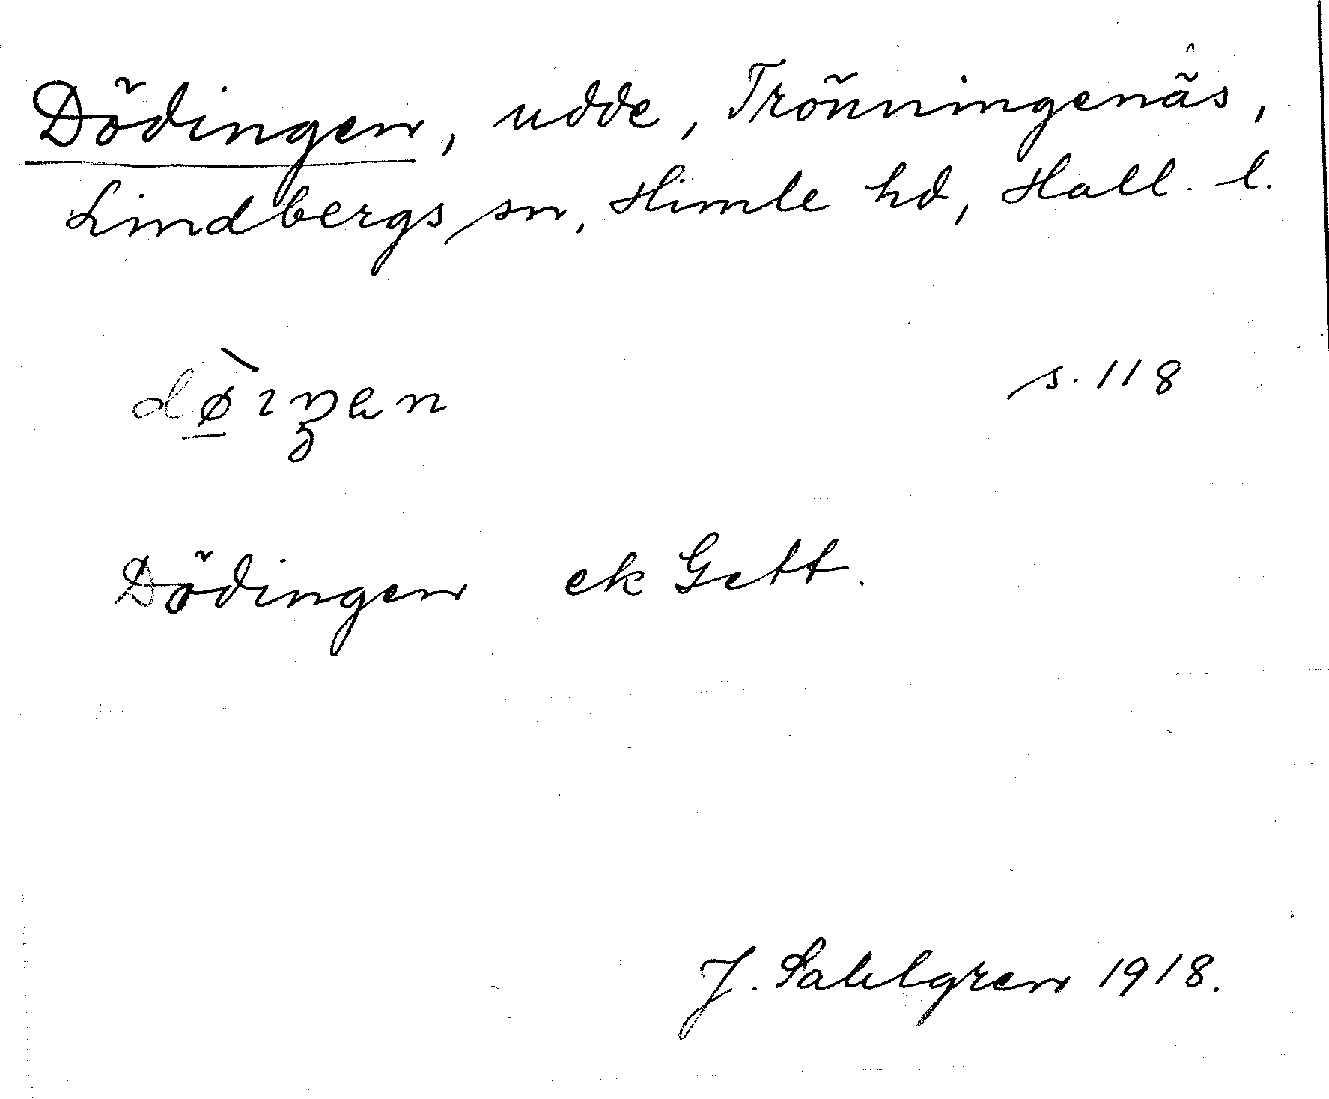 Dödingen, udde, Trönningenäs,
Lindbergs sn, Himle hd, Hall. l.
dø̀ıŋen s. 118
Dödingen ek Gett.
J. Sahlgren 1918.